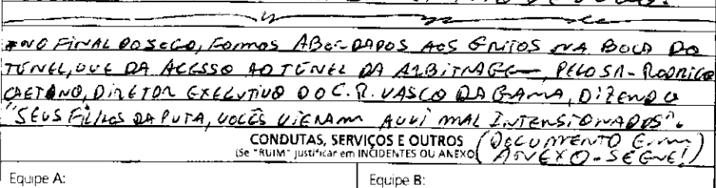 NO FINAL DO JOGO, FOMOS ABORDADOS AOS GRITOS NA BOCA DO
TÚNEL, QUE DA ACESSO AO TÚNEL DA ARBITRAGEM, PELO SR. RODRIGO
CAETANO, DIRETOR EXECUTIVO DO C.R. VASCO DA GAMA, DIZENDO
"SEUS FILHOS DA PUTA, VOCÊS VIERAM AQUI MAL INTENSIONADOS".
CONDUTAS, SERVIÇOS E OUTROS (DOCUMENTO EM
(Se "RUIM" justificar em INCIDENTES OU ANEXO) ANEXO - SEGUE!)
Equipe A: Equipe B: